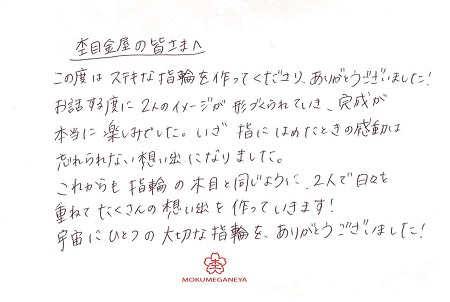 杢目金屋の皆さまへ
この度は ステキな指輪を作ってくださり、ありがとうございました！
お話する度に 2人のイメージが 形づくられていき、完成が
本当に楽しみでした。いざ 指にはめたときの感動は
忘れられない想い出になりました。
これからも 指輪の木目と同じように、2人で日々を
重ねて たくさんの想い出を作っていきます！
宇宙にひとつの大切な指輪を、ありがとうございました！
MOKUMEGANEYA